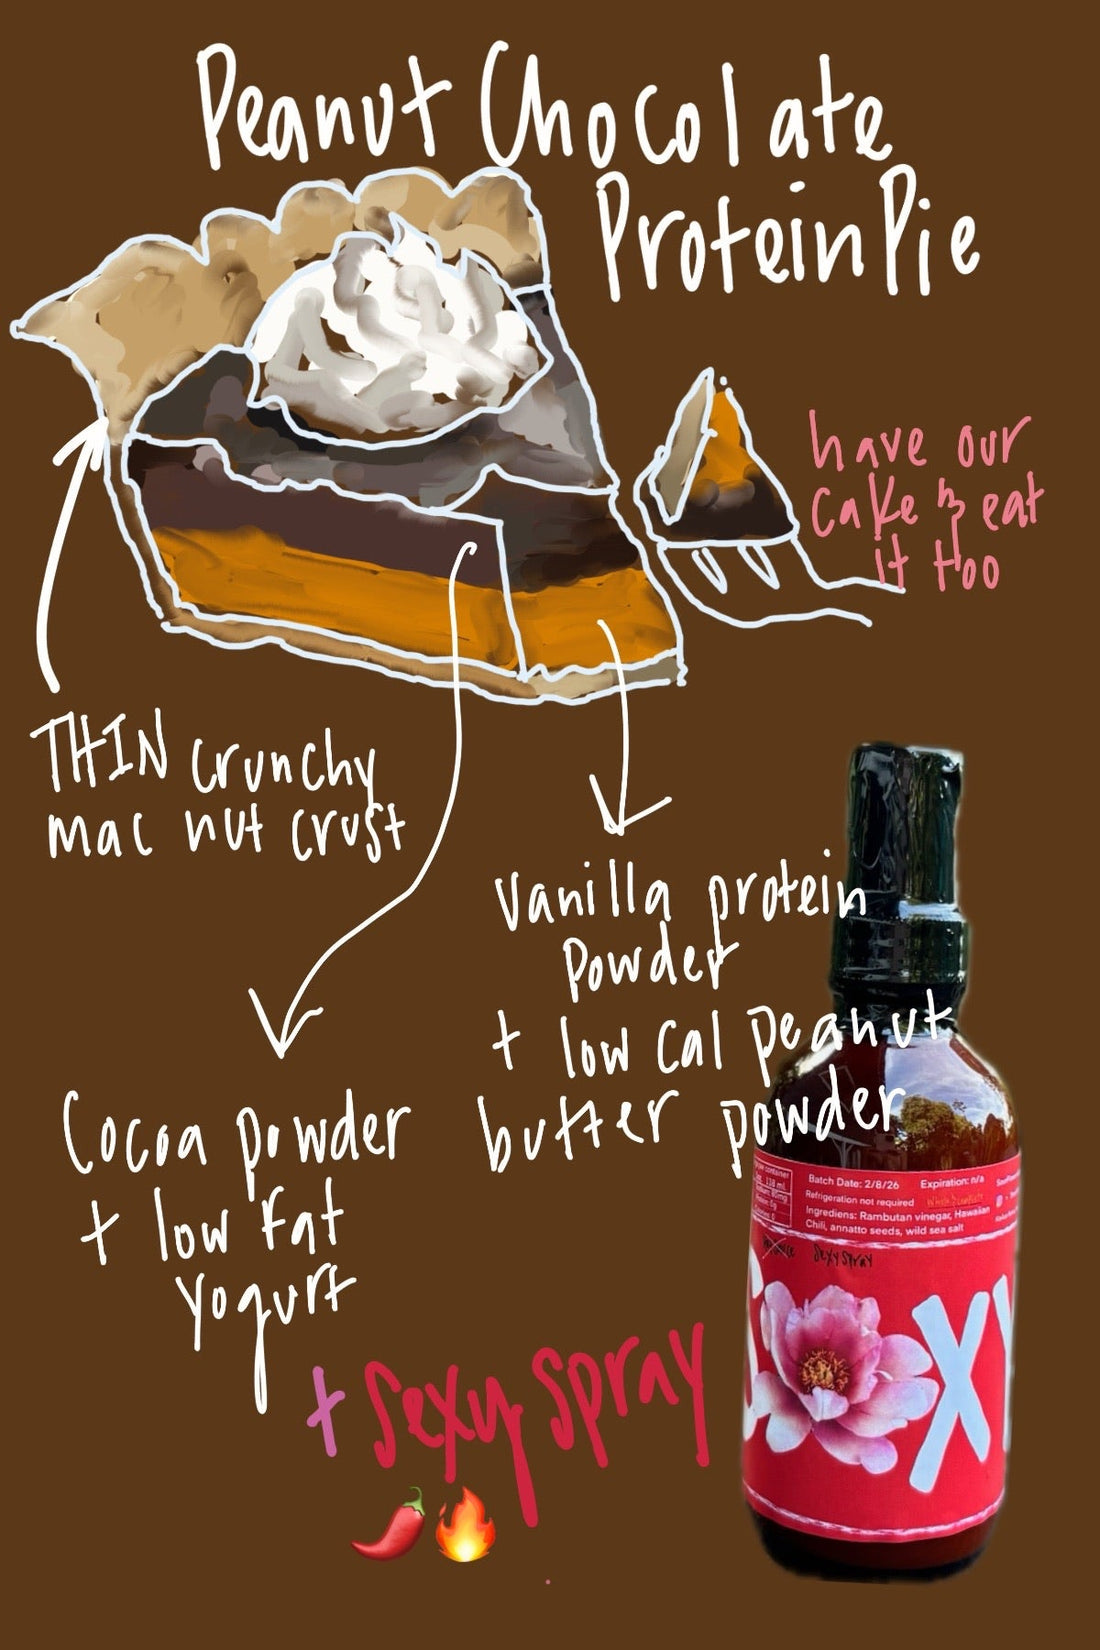 Peanut Chocolate
Protein Pie
have our
cake & eat
it too
THIN crunchy
mac nut crust
Vanilla protein
powder
+ low cal peanut
butter powder
Cocoa powder
+ low fat
yogurt
+ Sexy Spray
Batch Date: 2/8/26 Expiration: n/a
Refrigeration not required
Ingrediens: Rambutan vinegar, Hawaiian
Chili, annatto seeds, wild sea salt
Sexy Spray
XY